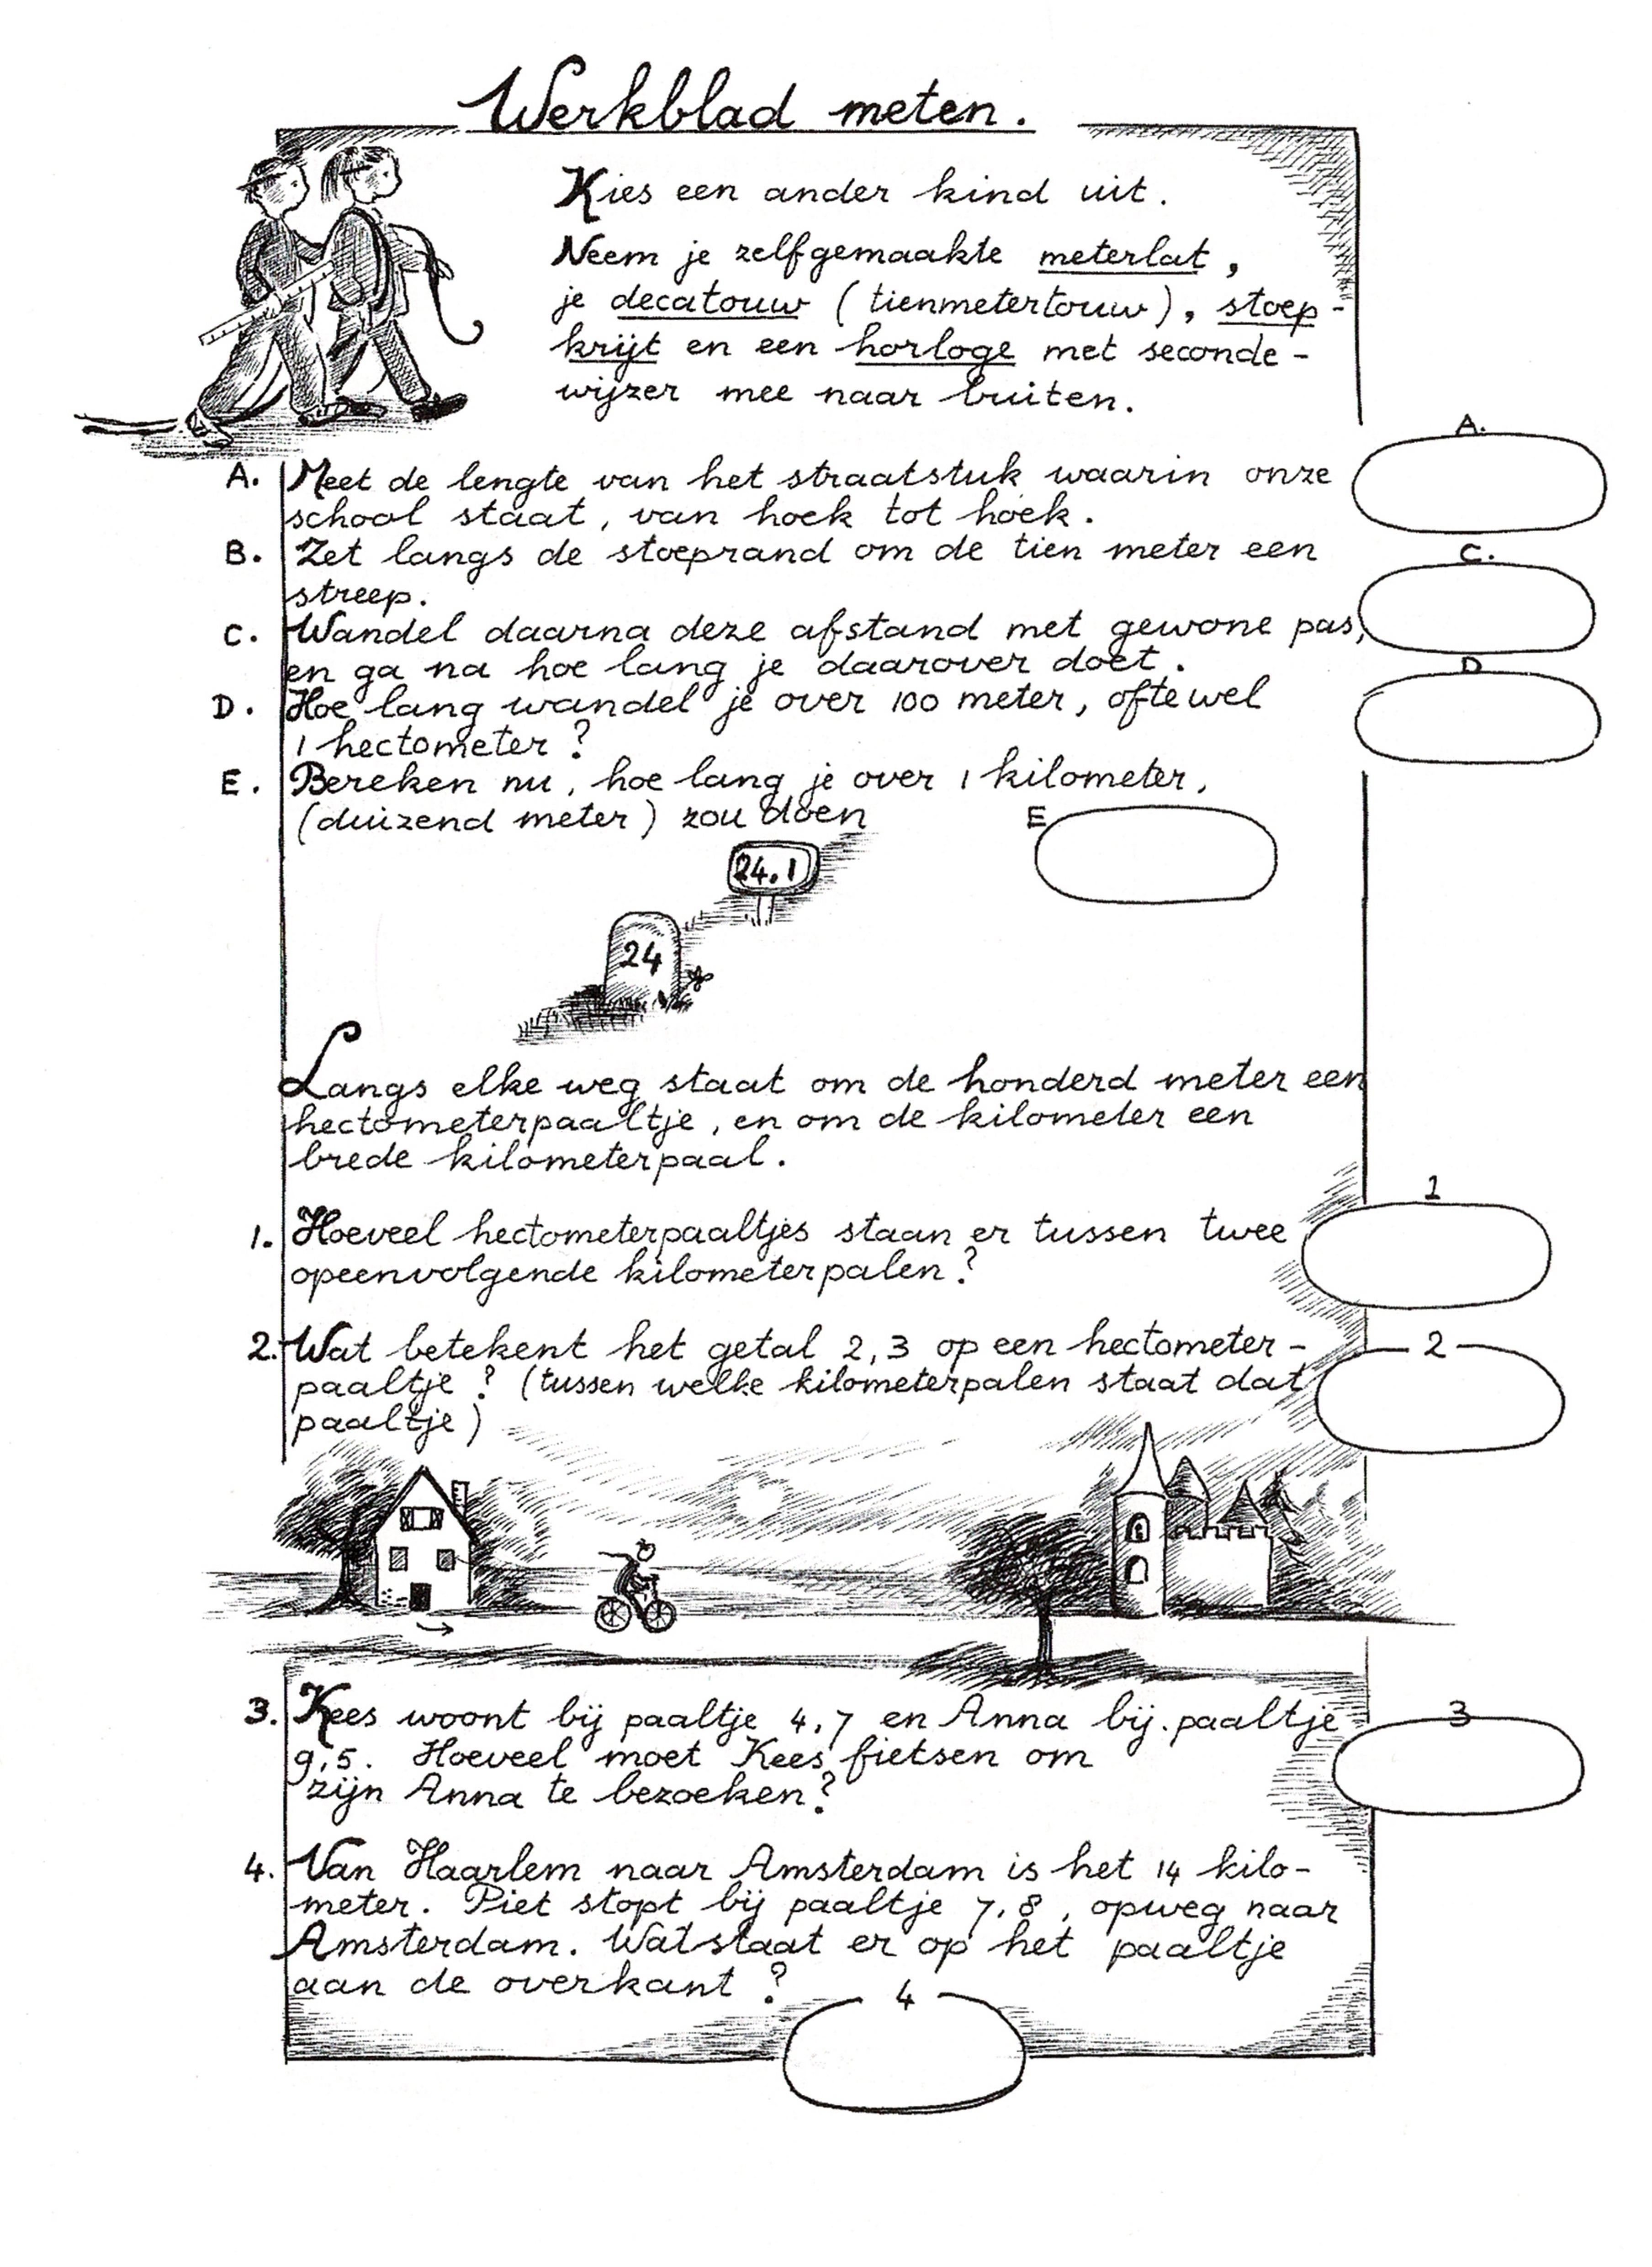 Werkblad meten.
Kies een ander kind uit.
Neem je zelfgemaakte meterlat,
je decatouw (tienmetertouw), stoep-
krijt en een horloge met seconde-
wijzer mee naar buiten.
A.
A. Meet de lengte van het straatstuk waarin onze
school staat, van hoek tot hoek.
B. Zet langs de stoeprand om de tien meter een
streep.
C.
C. Wandel daarna deze afstand met gewone pas,
en ga na hoe lang je daarover doet.
D
D. Hoe lang wandel je over 100 meter, oftewel
1 hectometer?
E. Bereken nu, hoe lang je over 1 kilometer,
(duizend meter) zou doen
E
24.1
24
Langs elke weg staat om de honderd meter een
hectometerpaaltje, en om de kilometer een
brede kilometerpaal.
1
1. Hoeveel hectometerpaaltjes staan er tussen twee
opeenvolgende kilometerpalen?
2
2. Wat betekent het getal 2,3 op een hectometer-
paaltje? (tussen welke kilometerpalen staat dat
paaltje)
3
3. Kees woont bij paaltje 4,7 en Anna bij.paaltje
9,5. Hoeveel moet Kees fietsen om
zijn Anna te bezoeken?
4. Van Haarlem naar Amsterdam is het 14 kilo-
meter. Piet stopt bij paaltje 7,8, opweg naar
Amsterdam. Wat staat er op het paaltje
aan de overkant?
4